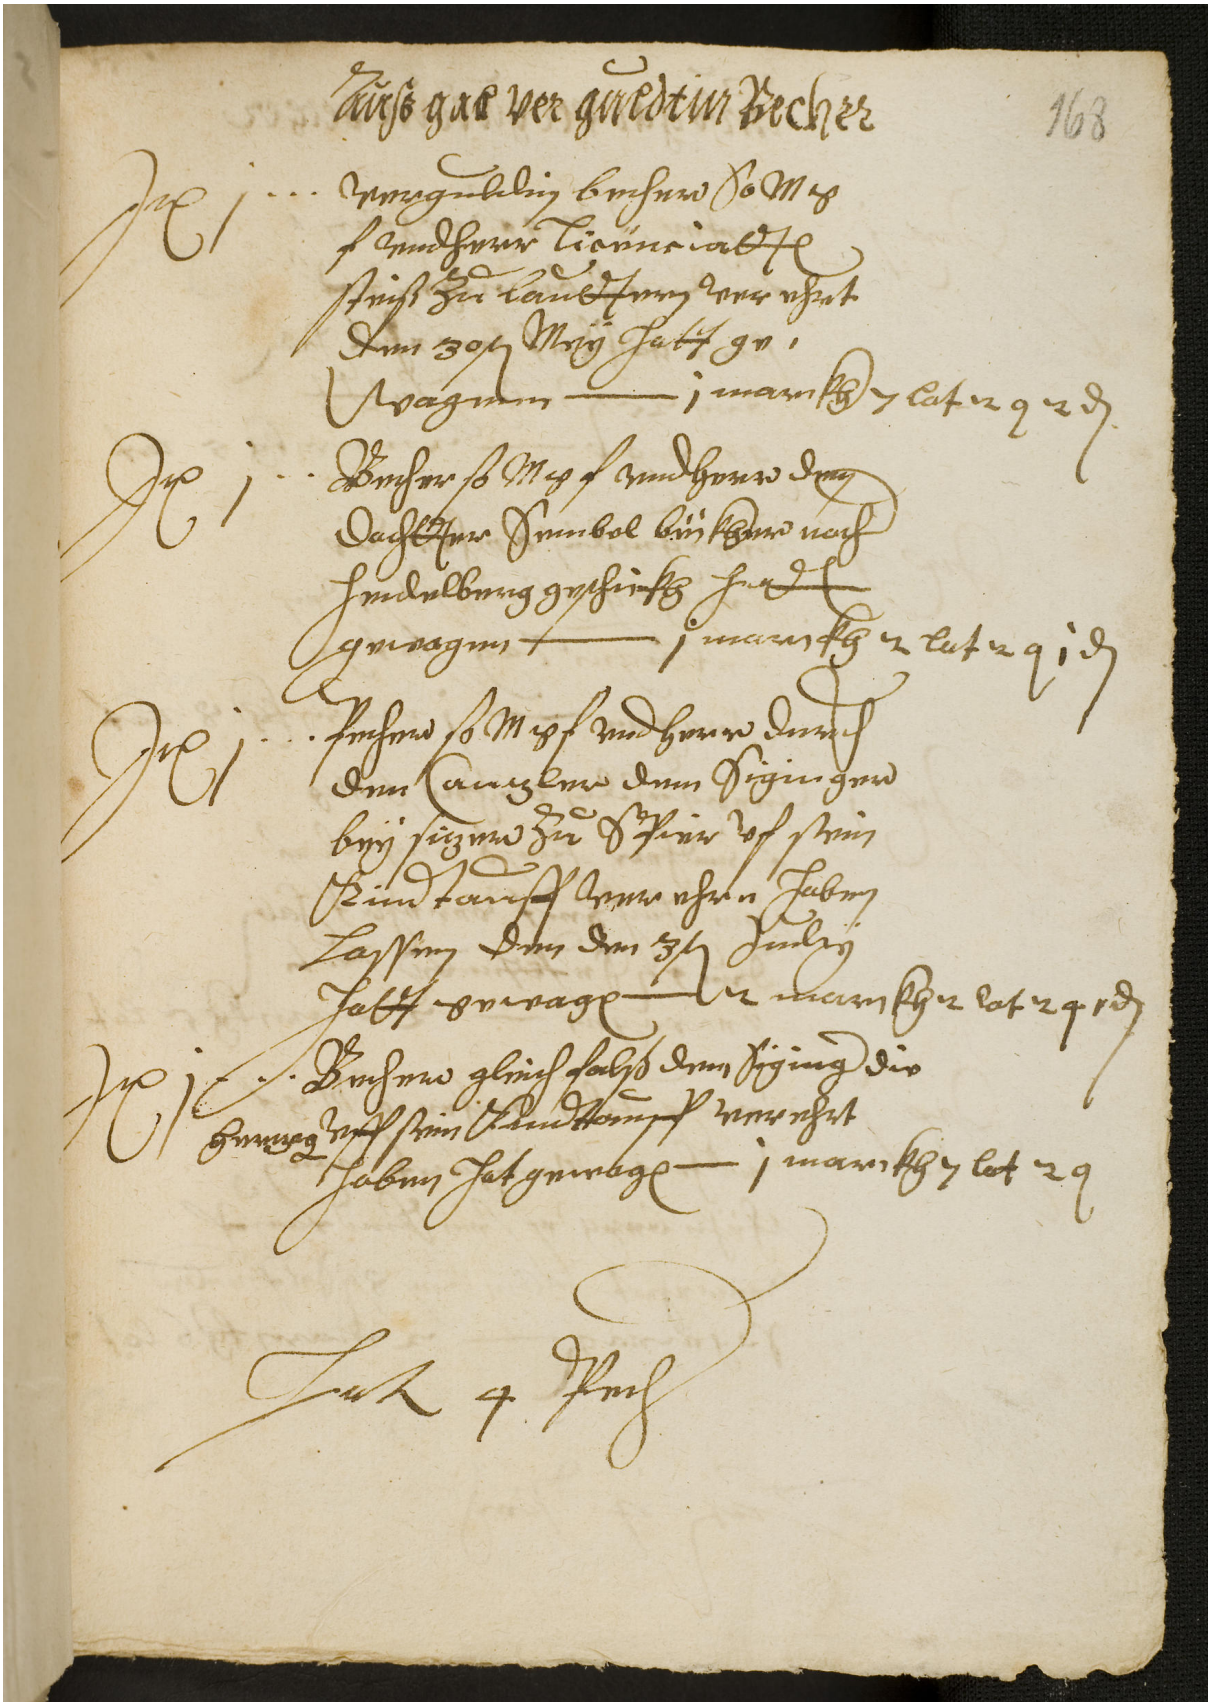 Außgab vergueldtin Becher
168
Itt j ... verguldin becher So M g
f vnd herr Licenciatt
steiß zu Lauttern verehrt
den 30t Meÿ hatt ge,
wagenn — j marckh 7 lot 2 q 2 d
Itt j ... Becher so M g f vnd herr dem
dochtter Simbel beckher nach
heidelberg geschickh hatt
gewagen — j marckh 2 lot 2 q j d
Itt j ... Pecher so M g f vnd herr durch
den Canzler dem Siginger
beÿsizer zu Speier vf sein
Kindtauff verehrn haben
Lassen den den 3t Julÿ
hatt gewag — 2 marckh 2 lot 2 q 1 d
Itt j ... Becher gleichfalß dem Siging die
herrzog vff sein Kindtauff verehrt
haben hat gewag — j marckh 7 lot 2 q
Lat 4 Pech